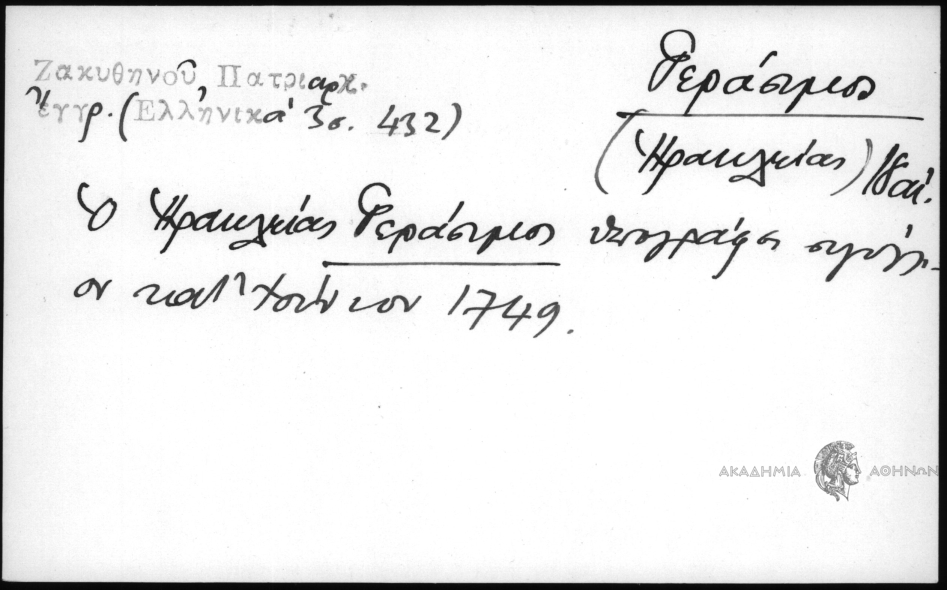 Ζακυθηνοῦ, Πατριαρχ.
ἔγγρ. (Ἑλληνικά 3 σ. 432)
Γεράσιμος
(Ἡρακλείας)
Ὁ Ἡρακλείας Γεράσιμος ὑπογράφει σιγίλλι-
ον κατ' Ἰούνιον 1749.
ΑΚΑΔΗΜΙΑ ΑΘΗΝΩΝ